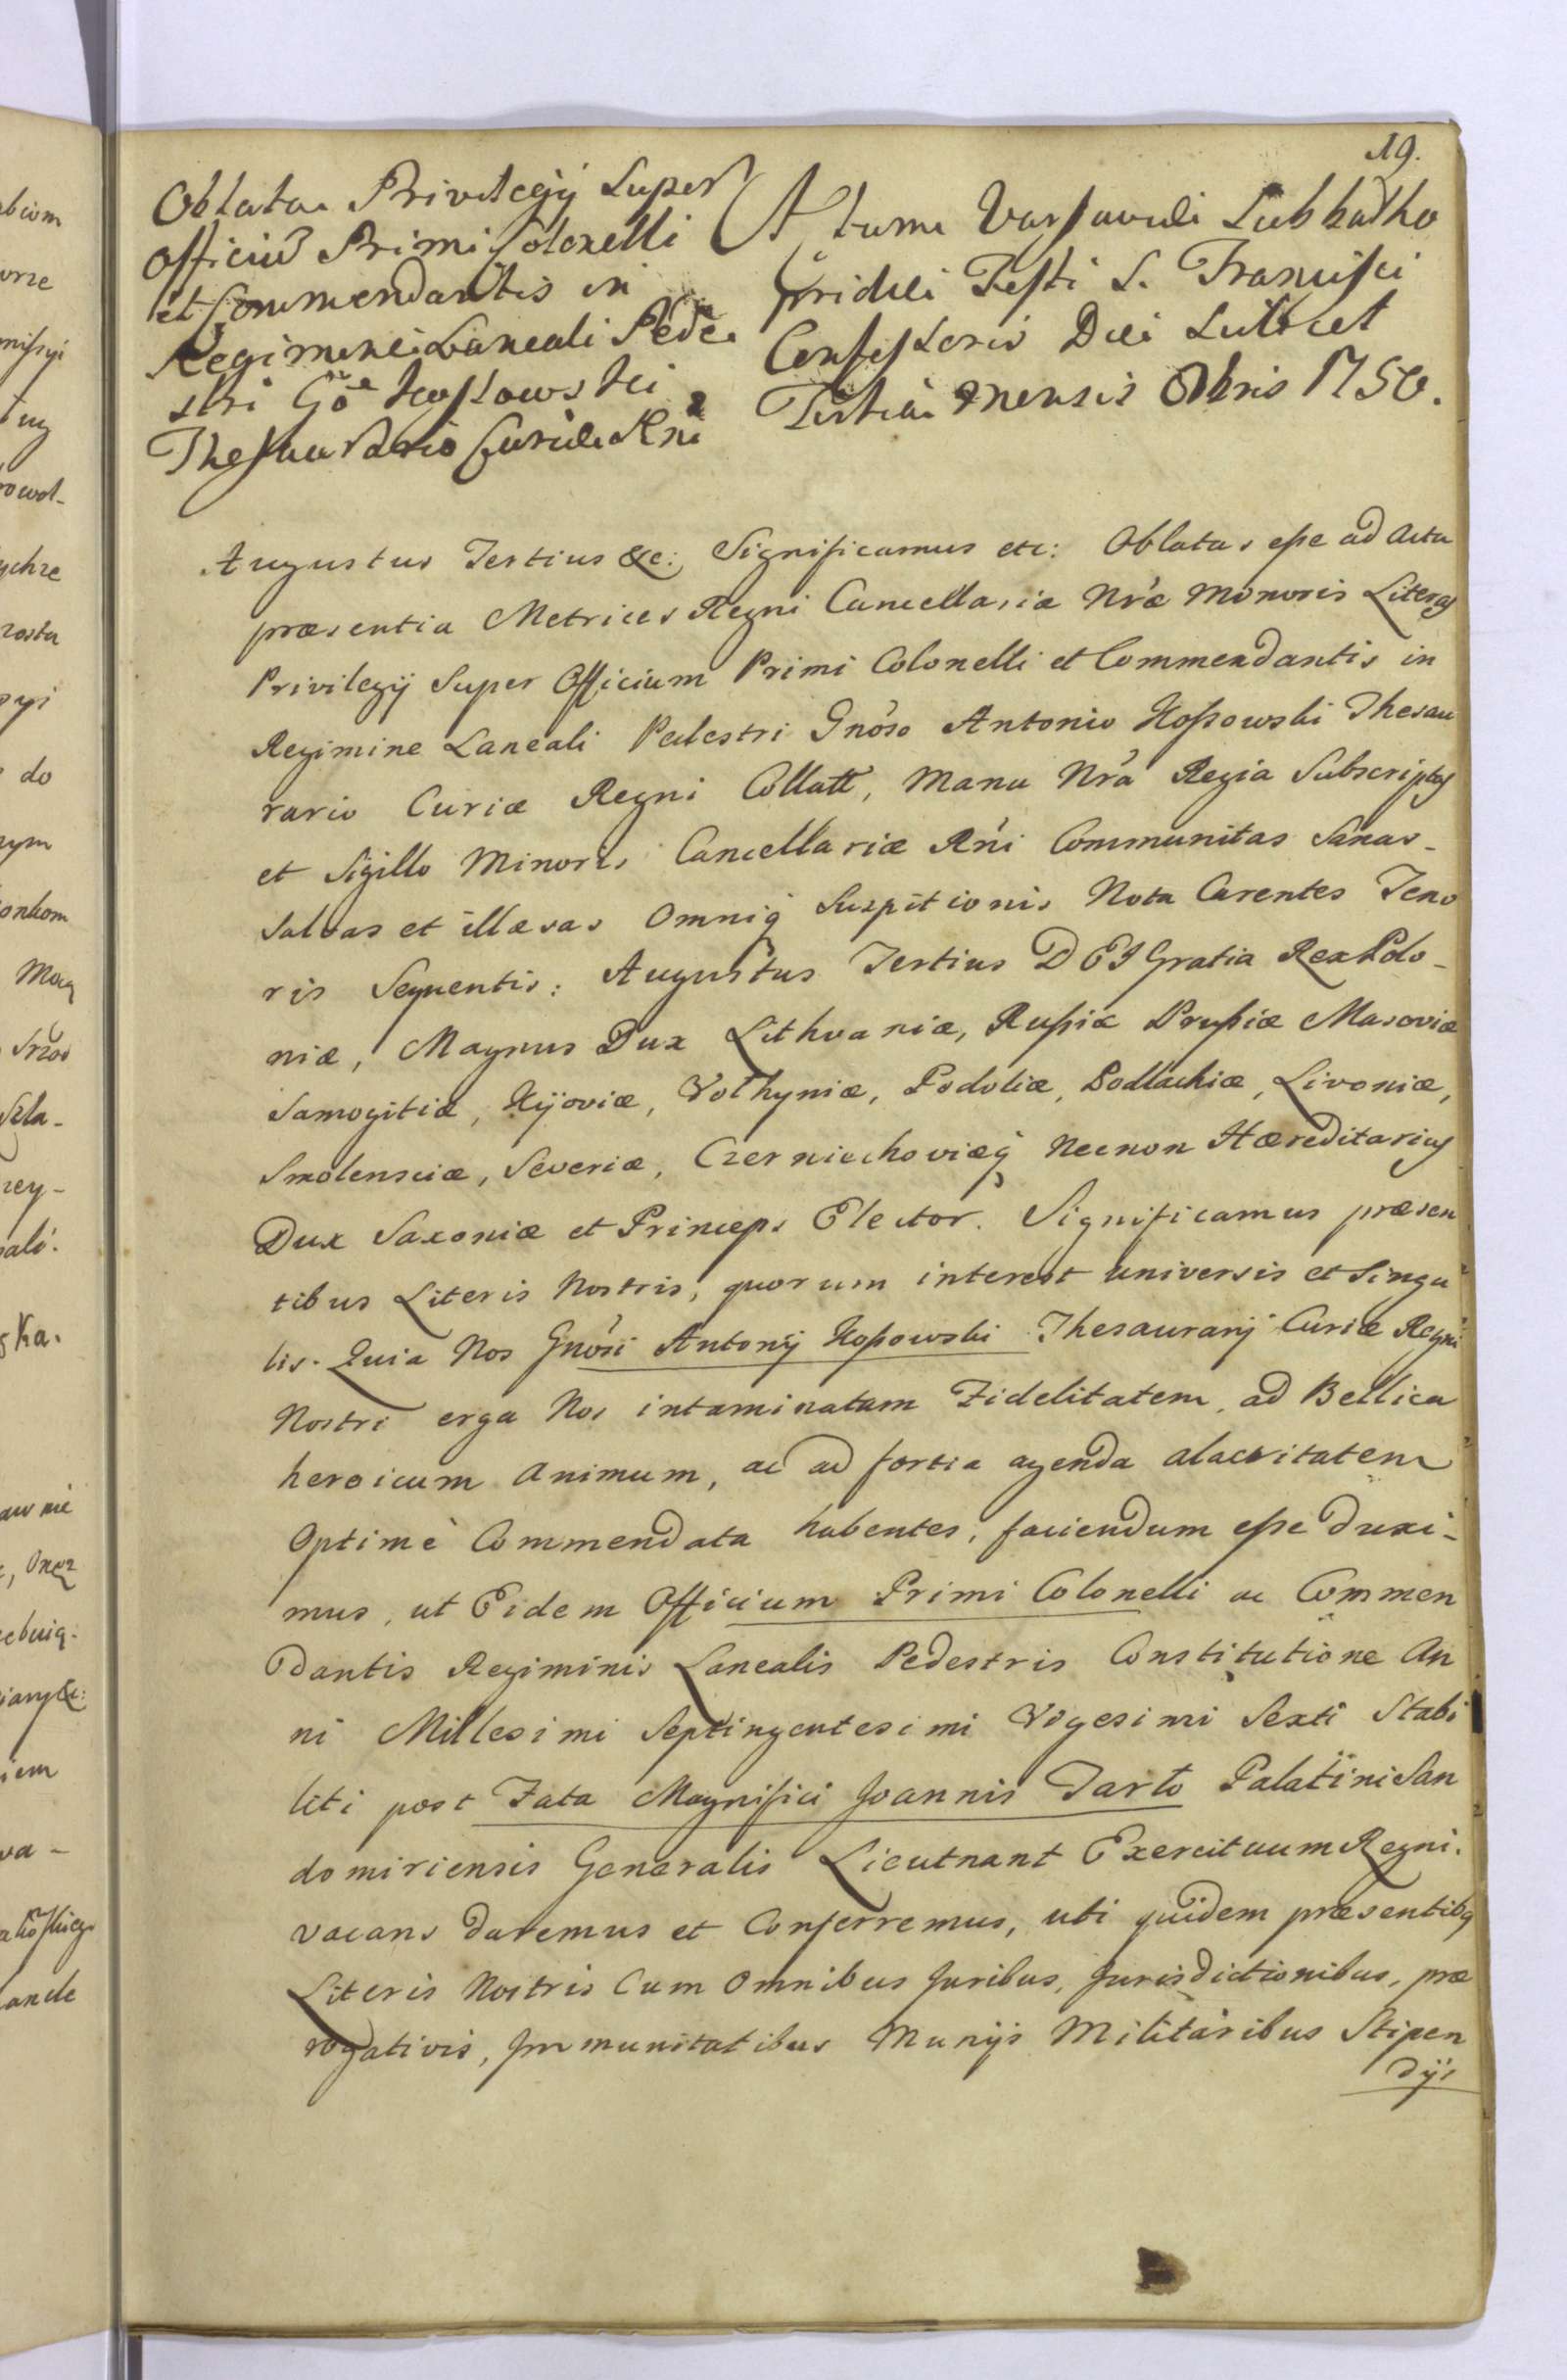 19.
Oblata Privilegÿ Super
Officiũ Primi Colonelli
et Commendantis in
Regimine Laneali Pede
stri Gõ Kossowski
Thesaurario Curiæ Rni
Actum Varsaviæ Sabbatho
pridie Festi S. Francisci
Confessoris Die Scilicet
Tertia mensis 8bris 1750.
Augustus Tertius &c: Significamus etc: Oblatas esse ad Acta
præsentia Metrices Regni Cancellariæ Nræ Minoris Literas
Privilegÿ Super Officium Primi Colonelli et Commendantis in
Regimine Laneali Pedestri Gnoso Antonio Kossowski Thesau
rario Curiæ Regni Collatt, Manu Nra Regia Subscriptas
et Sigillo Minoris Cancellariæ Rni Communitas Sanas
Salvas et illæsas Omniq Suspitionis Nota Carentes Teno
ris Sequentis: Augustus Tertius DEI Gratia Rex Polo-
niæ, Magnus Dux Lithvaniæ, Russiæ Prussiæ Masoviæ
Samogitiæ, Kijoviæ, Volhyniæ, Podoliæ, Podlachiæ, Livoniæ,
Smolensciæ, Severiæ, Czerniechoviæq necnon Hæreditarius
Dux Saxoniæ et Princeps Elector. Significamus præsen
tibus Literis Nostris, quorum interest universis et Singu
lis. Quia Nos Gnosi Antonÿ Kossowski Thesaurarÿ Curiæ Regni
Nostri erga Nos intaminatam Fidelitatem, ad Bellica
heroicum Animum, ac ad fortia agenda alacritatem
Optimè Commendata habentes, faciendum esse duxi-
mus, ut Eidem Officium Primi Colonelli ac Commen
dantis Regiminis Lanealis Pedestris Constitutione An
ni Millesimi Septingentesimi Vigesimi Sexti Stabi
liti post Fata Magnifici Joannis Tarło Palatini San
domiriensis Generalis Lieutnant Exercituum Regni.
vacans daremus et Conferremus, uti quidem præsentibq
Literis Nostris Cum Omnibus Juribus, Jurisdictionibus, præ
rogativis, Immunitatibus Munijs Militaribus Stipen
dÿs